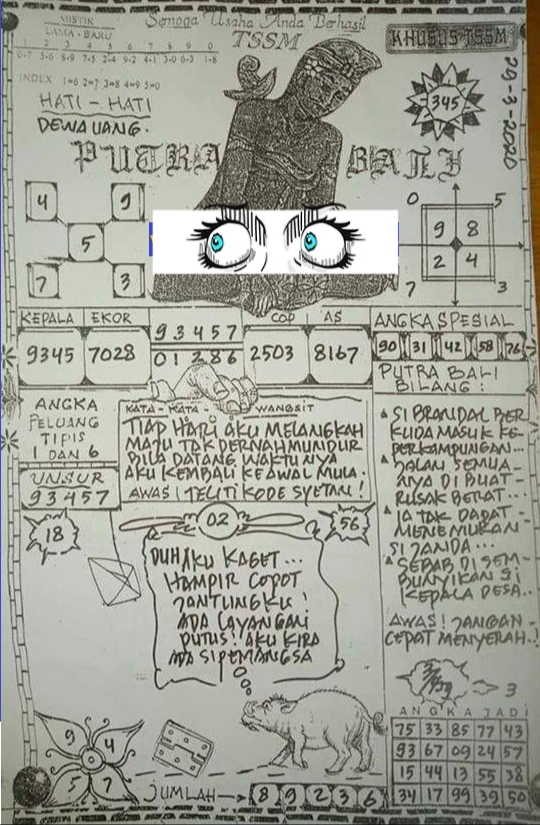 Semoga Usaha Anda Berhasil
MISTIK
LAMA - BARU
TSSM
KHUSUS TSSM
1 2 3 4 5 6 7 8 9 0
0-7 5-6 8-9 7-5 2-4 9-2 4-1 3-0 6-3 1-8
INDEX 1=6 2=7 3=8 4=9 5=0
HATI - HATI
DEWA UANG.
345
29-3-2020
PUTRA BALI
4 9
5
7 3
0 5
9 8
2 4
7 3
KEPALA EKOR
9345 7028
93457
01286
COP AS
2503 8167
ANGKA SPESIAL
90 31 42 58 76
PUTRA BALI
BILANG :
ANGKA
PELUANG
TIPIS
1 DAN 6
UNSUR
93457
KATA - KATA - WANGSIT
TIAP HARI AKU MELANGKAH
MAJU TAK PERNAH MUNDUR
BILA DATANG WAKTUNYA
AKU KEMBALI KE AWAL MULA.
AWAS! TELITI KODE SYETAN!
SI BRANDAL BER
KUDA MASUK KE-
PERKAMPUNGAN...
JALAN SEMUA-
NYA DI BUAT-
RUSAK BERAT...
IA TAK DAPAT-
MENEMUKAN
SI JANDA...
SEBAB DI SEM-
BUNYIKAN SI
KEPALA DESA..
AWAS! JANGAN-
CEPAT MENYERAH..!
18
02
56
DUH AKU KAGET...
HAMPIR COPOT
JANTUNGKU!
ADA LAYANGAN
PUTUS! AKU KIRA
ADA SI PEMANGSA
3
ANGKA JADI
75 33 85 77 43
93 67 09 24 57
15 44 13 55 38
34 17 99 39 50
9 4
5 7
JUMLAH → 8 9 2 3 6